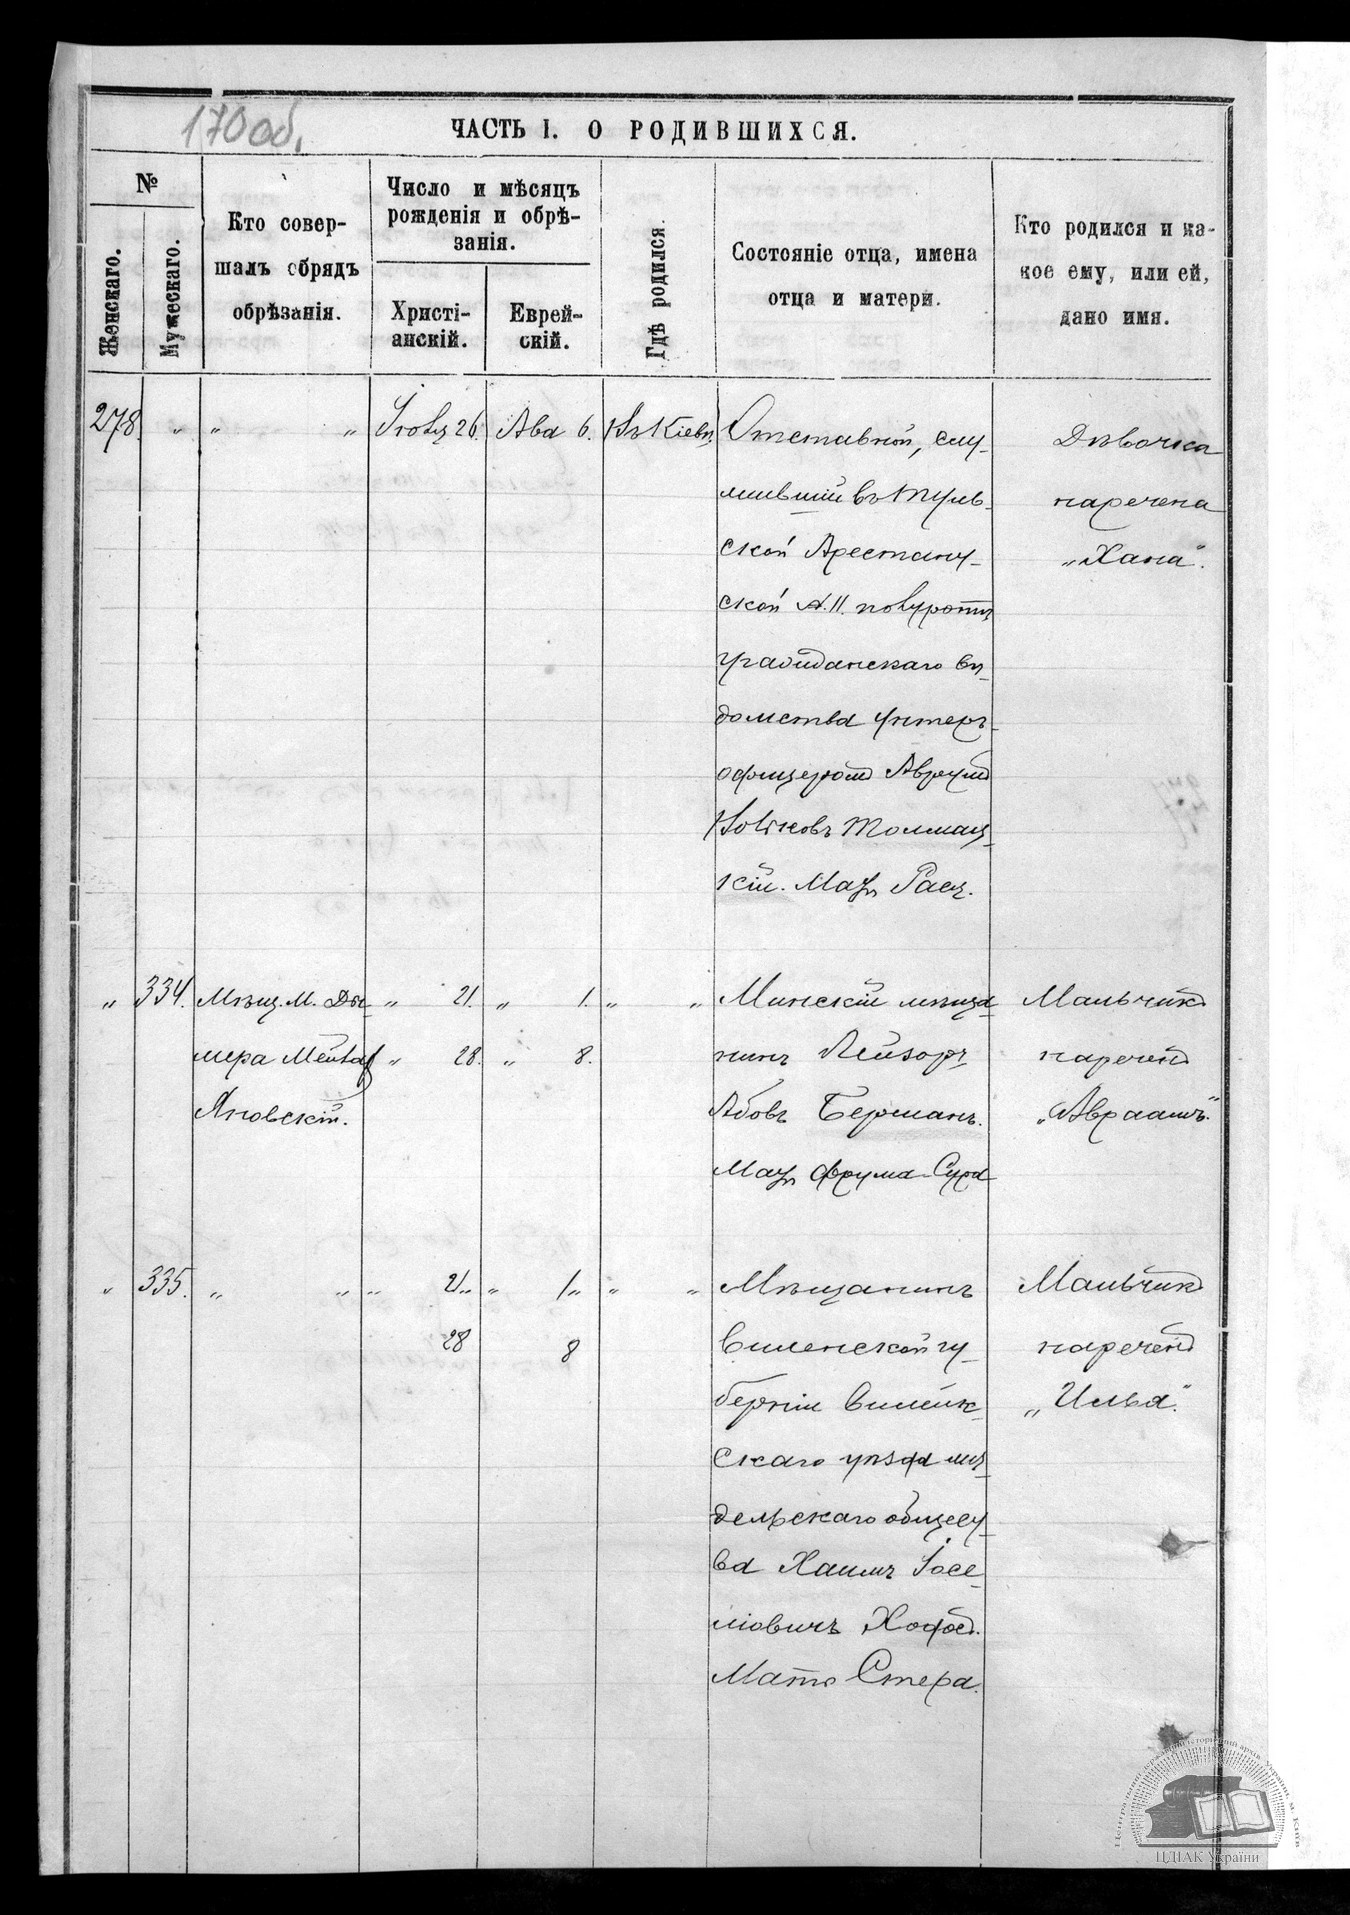 170 об.
ЧАСТЬ I. О РОДИВШИХСЯ.
№
Женскаго.
Мужескаго.
Кто совер-
шалъ обрядъ
обрѣзанія.
Число и мѣсяцъ
рожденія и обрѣ-
занія.
Христі-
анскій.
Еврей-
скій.
Гдѣ родился.
Состояніе отца, имена
отца и матери.
Кто родился и ка-
кое ему, или ей,
дано имя.
278. " " " Іюля 26. Ава 6. Въ Кіевѣ. Отставной, слу-
жившій въ Туль-
ской Арестант-
ской
гражданскаго вѣ-
домства унтеръ-
офицеромъ Аврумъ
Вольковъ Толмац-
кій. Мать Рася.
Дѣвочка
наречена
„Хана“.
" 334. Мѣщ. м. Ды-
мера
Яновскій.
" 21. " 1. " "
" 28. " 8.
Минскій мѣща-
нинъ Лейзоръ
Абовъ Берманъ.
Мать Фрума-Сура
Мальчикъ
нареченъ
„Авраамъ“.
" 335. " " " 21. " 1. " "
28 8
Мѣщанинъ
Виленской гу-
берніи Вилейк-
скаго уѣзда мя-
дельскаго общест-
ва Хаимъ Іосе-
ліовичъ
Мать Стера.
Мальчикъ
нареченъ
„Илья“.
ЦДІАК України